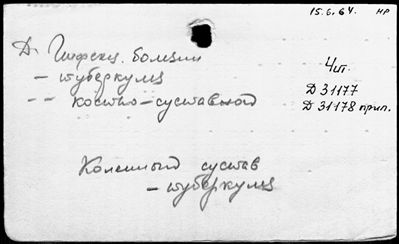 15.6.64. НР
Д. Инфекц. болезни
– туберкулез
– – костно-суставной
Чт.
Д 31177
Д 31178 прил.
Коленный сустав
– туберкулез